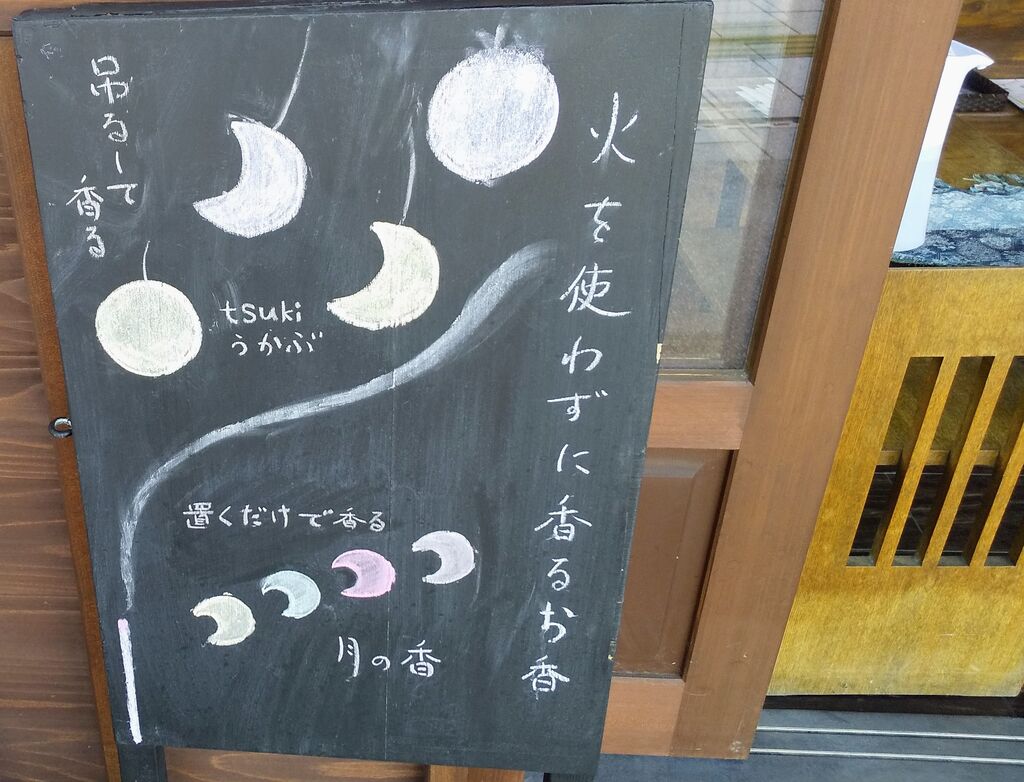 火を使わずに香るお香
吊るして
香る
tsuki
うかぶ
置くだけで香る
月の香